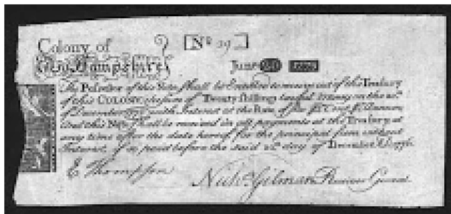 Colony of
New Hampshire
No 19
June 20 1775
The Possessor of this Note shall be Entitled to receive out of the Treasury
of this COLONY the sum of Twenty shillings Lawful Money on the 20th
of December with Interest at the Rate of Six Pr Cent Pr Annum
and this Note shall be received in all payments at the Treasury at
any time after the date hereof for the principal sum without
Interest, if so paid before the said 20th day of December AD 1776.
E Thompson
Nichs Gilman Receiver General